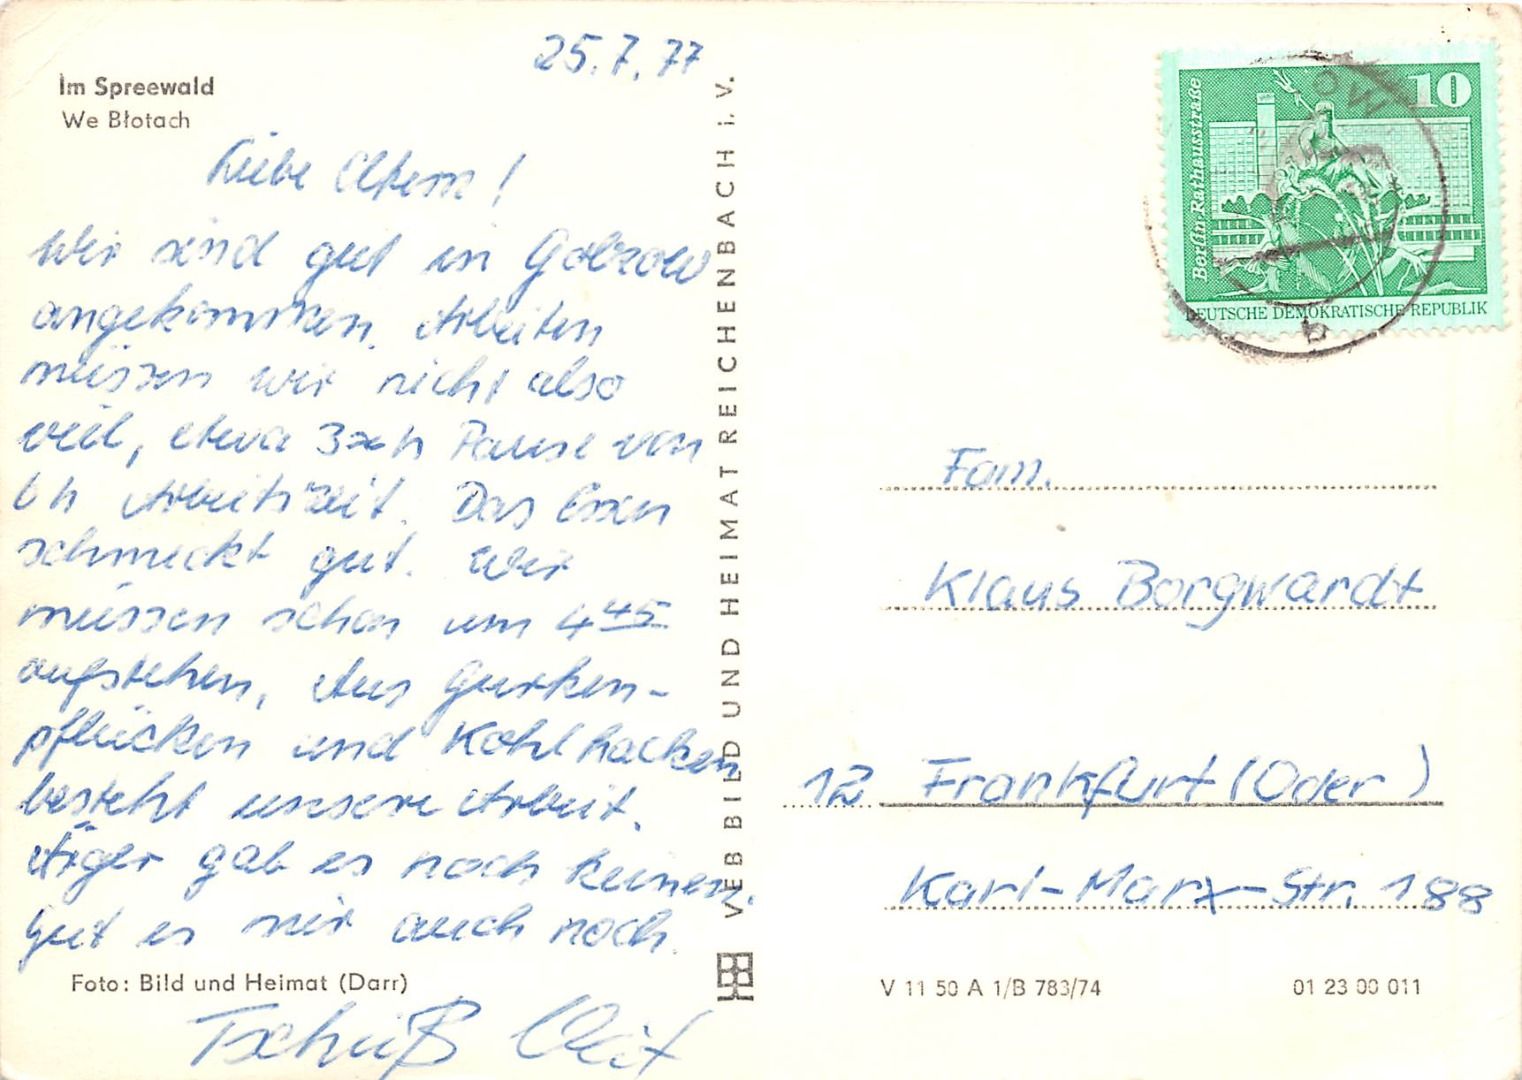 25.7.77
Im Spreewald
We Błotach
Liebe Eltern!
Wir sind gut in Golzow
angekommen. Arbeiten
müssen wir nicht also
viel, etwa 3 h Pause von
6 h Arbeitszeit. Das Essen
schmeckt gut. Wir
müssen schon um 4 45
aufstehen. Aus Gurken-
pflücken und Kohl hacken
besteht unsere Arbeit.
Ärger gab es noch keinen.
Gut es mir auch noch.
Foto: Bild und Heimat (Darr)
Tschüß
VEB BILD UND HEIMAT REICHENBACH i. V.
10
Berlin-Rathausstraße
DEUTSCHE DEMOKRATISCHE REPUBLIK
OW
b
Fam.
Klaus Borgwardt
12 Frankfurt (Oder)
Karl-Marx-Str. 188
V 11 50 A 1/B 783/74
01 23 00 011